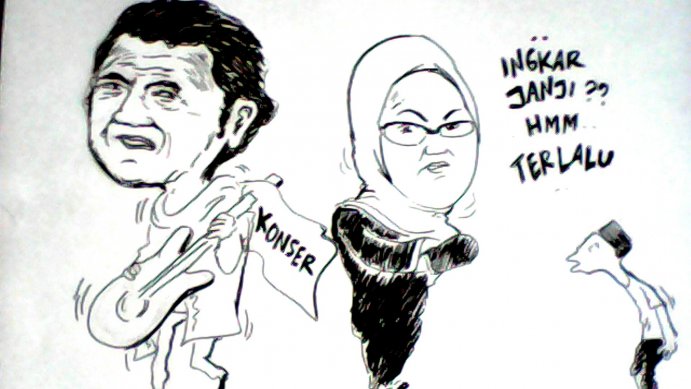 KONSER
INGKAR
JANJI ??
HMM..
TERLALU